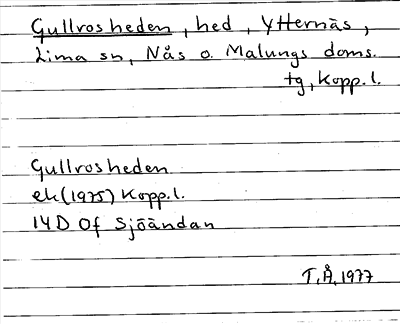 Gullrosheden, hed, Ytternäs,
Lima sn, Nås o. Malungs doms.
tg, Kopp.l.
Gullrosheden
ek(1975) Kopp.l.
14D 0f Sjöändan
T.Å, 1977